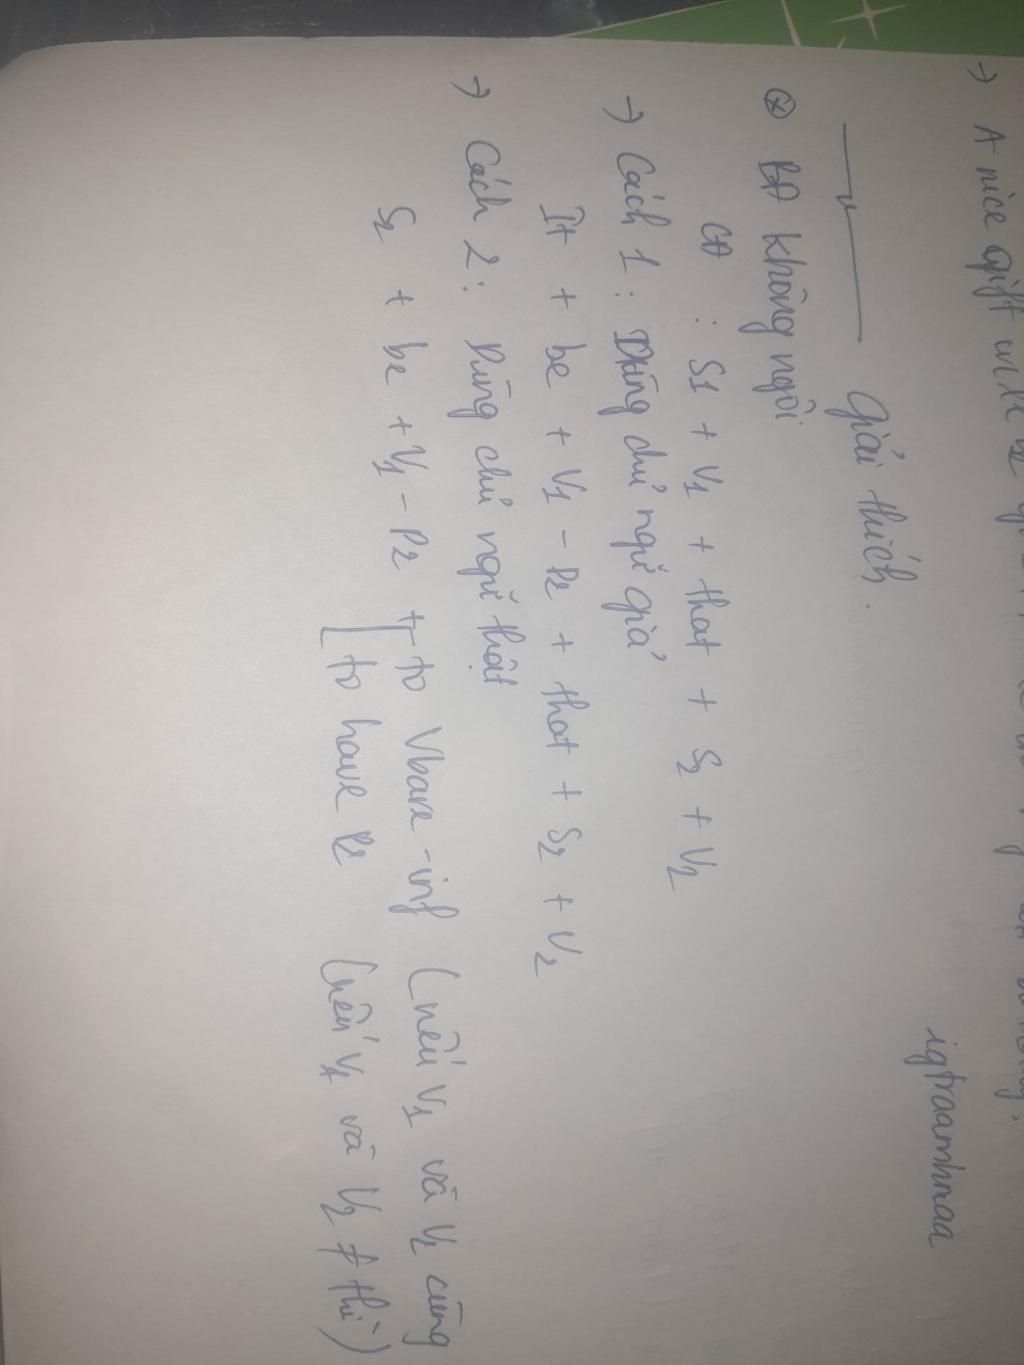 → A nice gift will be
Giải thích.
igtraamhnaa
⊛ BĐ không ngôi
CĐ : S1 + V1 + that + S2 + V2
→ Cách 1 : Dùng chủ ngữ giả
It + be + V1 - P2 + that + S2 + V2
→ Cách 2 : Dùng chủ ngữ thật
S2 + be + V1 - P2 + to Vbare-inf (nếu V1 và V2 cùng
to have P2 (nếu V1 và V2 ≠ thì)